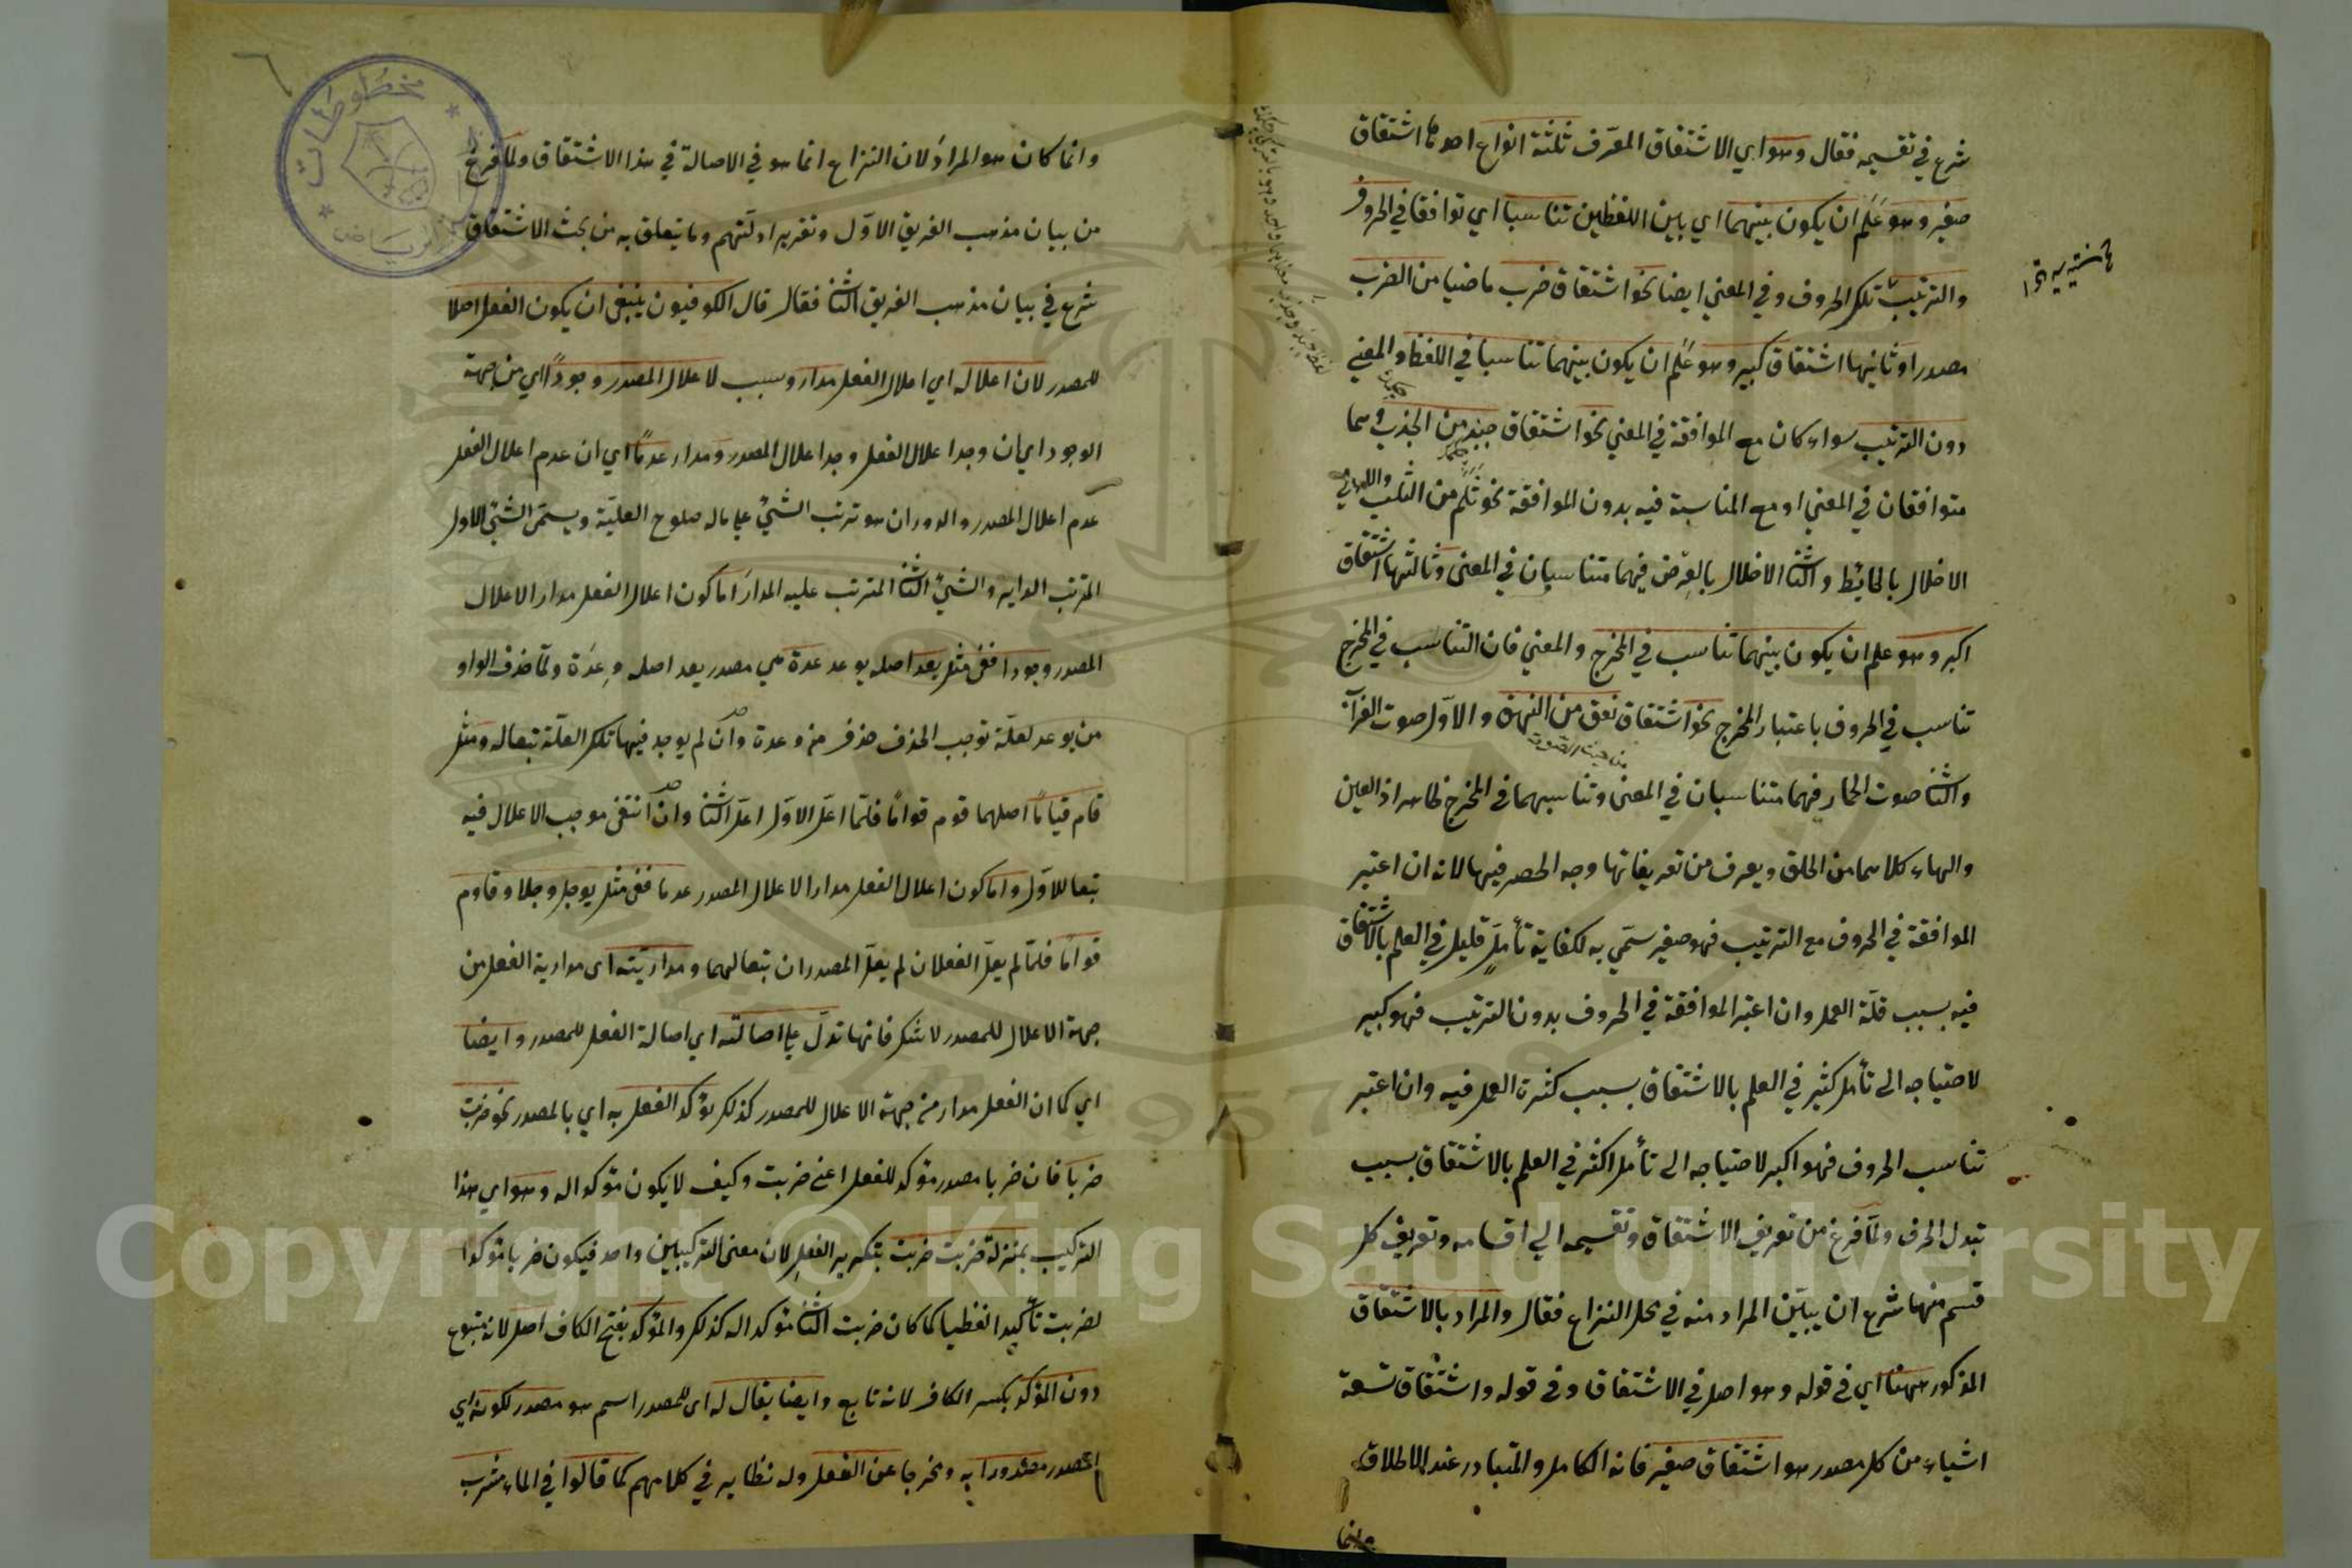 شرع في تقسيمه فقال وهو اي الاشتقاق المعرّف ثلثة انواع احدها اشتقاق
صغير وهو علم ان يكون بينهما اي بين اللفظين تناسبا اي توافقا في الحروف
والترتيب تلك الحروف وفي المعني ايضا نحو اشتقاق ضرب ماضيا من الضرب
مصدرا وثانيها اشتقاق كبير وهو علم ان يكون بينهما تناسبا في اللفظ والمعني
دون الترتيب سواء كان مع الموافقة في المعني نحو اشتقاق جبذ من الجذب وهما
متوافقان في المعني او مع المناسبة فيه بدون الموافقة نحو ثلم من الثلب والاول
الاخلال بالحائط والثنا الاخلال بالعرض فهما متناسبان في المعنى وثالثها اشتقاق
اكبر وهو علم ان يكون بينهما تناسب في المخرج والمعني فان التناسب في المخرج
تناسب في الحروف باعتبار المخرج نحو اشتقاق نعق من النهق والاوّل صوت الغراب
من حيث الصوت
والثنا صوت الحمار فهما متناسبان في المعنى وتناسبهما في المخرج ظاهر اذ العين
والهاء كلاهما من الحلق ويعرف من تعريفاتها وجه الحصر فيها لانه ان اعتبر
الموافقة في الحروف مع الترتيب فهو صغير سمّي به لكفاية تأمل قليل في العلم بالاشتقاق
فيه بسبب قلّة العمل وان اعتبر الموافقة في الحروف بدون الترتيب فهو كبير
لاحتياجه الى تأمل كثير في العلم بالاشتقاق بسبب كثرة العمل فيه وان اعتبر
تناسب الحروف فهو اكبر لاحتياجه الى تأمل اكثر في العلم بالاشتقاق بسبب
تبدل الحرف ولمّا فرغ من تعريف الاشتقاق وتقسيمه الي اقسامه وتعريف كل
قسم منها شرع ان يبيّن المراد منه في محل النزاع فقال والمراد بالاشتقاق
المذكور ههنا اي في قوله وهو اصل في الاشتقاق وفي قوله واشتقاق تسعة
اشياء من كل مصدر هو اشتقاق صغير فانه الكامل والمتبادر عند الاطلاق
وانما
وانما كان هو المراد لان النزاع انما هو في الاصالة في هذا الاشتقاق ولما فرغ
من بيان مذهب الفريق الاوّل وتقرير ادلّتهم وما يتعلق به من بحث الاشتقاق
شرع في بيان مذهب الفريق الثنا فقال قال الكوفيون ينبغي ان يكون الفعل اصلا
للمصدر لان اعلاله اي اعلال الفعل مدار وسبب لاعلال المصدر وجودًا اي من جهة
الوجود اي ان وجد اعلال الفعل وجد اعلال المصدر ومدار عدمًا اي ان عدم اعلال الفعل
عدم اعلال المصدر والدوران هو ترتب الشيئ علي ماله صلوح العليّة ويسمّى الشيئ الاول
المترتب الداير والشيئ الثنا المترتب عليه المدار اما كون اعلال الفعل مدار الاعلال
المصدر وجودا ففي مثل يعد اصله يوعد عدة هي مصدر يعد اصله وعدة ولمّا حذف الواو
من يوعد لعلّة توجب الحذف حذف من وعدة وان لم يوجد فيها تلك العلّة تبعا له ومثل
قام قيامًا اصلهما قوم قوامًا فلمّا اعلّ الاوّل اعلّ الثنا وان انتفى موجب الاعلال فيه
تبعا للاوّل واما كون اعلال الفعل مدارا لاعلال المصدر عدما ففي مثل يوجل وجلا وقاوم
قوامًا فلمّا لم يعلّ الفعلان لم يعلّ المصدران تبعا لهما ومداريّته اى مدارية الفعل من
جهة الاعلال للمصدر لا شك فانها تدلّ علي اصالته اي اصالة الفعل للمصدر وايضا
اي كما ان الفعل مدار من جهة الاعلال للمصدر كذلك يؤكد الفعل به اي بالمصدر نحو ضربت
ضربا فان ضربا مصدر مؤكد للفعل اعني ضربت وكيف لا يكون مؤكدا له وهو اي هذا
التركيب بمنزلة ضربت ضربت بتكرير الفعل لان معنى التركيبين واحد فيكون ضربا مؤكدا
لضربت تأكيدا لفظيا كما كان ضربت الثنا مؤكدا له كذلك والمؤكد بفتح الكاف اصل لانه متبوع
دون المؤكد بكسر الكاف لانه تابع وايضا يقال له اى للمصدر اسم هو مصدر لكونه اي
المصدر مصدورا به ومخرجا عن الفعل وله نظاير في كلامهم كما قالوا في الماء مشرب
مخطوطات
الرياض
Copyright © King Saud University
1957